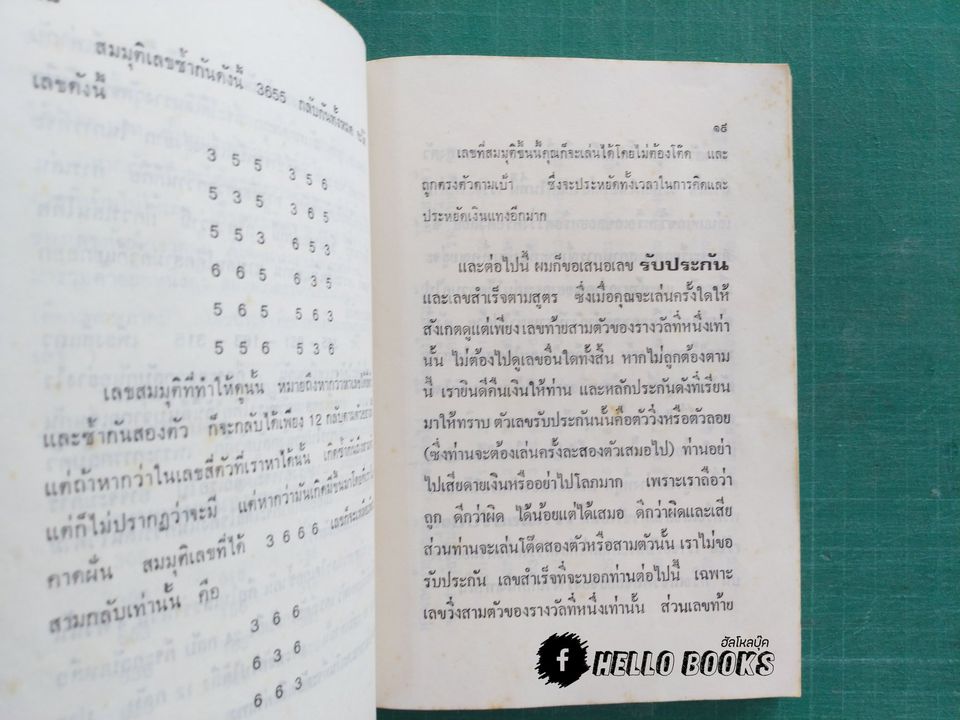 สมมุติเลขซ้ำกันดังนี้ 3655 กลับกันทั้งหมด จะได้
เลขดังนี้
355 356
535 365
553 653
665 635
565 563
556 536
เลขสมมุติที่ทำให้ดูนั้น หมายถึงหากว่าหาเลขได้
และซ้ำกันสองตัว ก็จะกลับได้เพียง 12 กลับตามตัวอย่าง
แต่ถ้าหากว่าในเลขสี่ตัวที่เราหาได้นั้น เกิดซ้ำกัน
แต่ก็ไม่ปรากฏว่าจะมี แต่หากว่ามันเกิดมีขึ้นมาโดย
คาดฝัน สมมุติเลขที่ได้ 3666 เลขก็จะ
สามกลับเท่านั้น คือ
366
636
663
๑๕
เลขที่สมมุติขั้นนี้คุณก็จะเล่นได้โดยไม่ต้องโต๊ด และ
ถูกตรงตัวตามเป้า ซึ่งจะประหยัดทั้งเวลาในการคิดและ
ประหยัดเงินแทงอีกมาก
และต่อไปนี้ ผมก็ขอเสนอเลข รับประกัน
และเลขสำเร็จตามสูตร ซึ่งเมื่อคุณจะเล่นครั้งใดให้
สังเกตดูแต่เพียงเลขท้ายสามตัวของรางวัลที่หนึ่งเท่า
นั้น ไม่ต้องไปดูเลขอื่นใดทั้งสิ้น หากไม่ถูกต้องตาม
นี้ เรายินดีคืนเงินให้ท่าน และหลักประกันดังที่เรียน
มาให้ทราบ ตัวเลขรับประกันนั้นคือตัววิ่งหรือตัวลอย
(ซึ่งท่านจะต้องเล่นครั้งละสองตัวเสมอไป) ท่านอย่า
ไปเสียดายเงินหรืออย่าไปโลภมาก เพราะเราถือว่า
ถูก ดีกว่าผิด ได้น้อยแต่ได้เสมอ ดีกว่าผิดและเสีย
ส่วนท่านจะเล่นโต๊ดสองตัวหรือสามตัวนั้น เราไม่ขอ
รับประกัน เลขสำเร็จที่จะบอกท่านต่อไปนี้ เฉพาะ
เลขวิ่งสามตัวของรางวัลที่หนึ่งเท่านั้น ส่วนเลขท้าย
ฮัลโหลบุ๊ค
f HELLO BOOKS